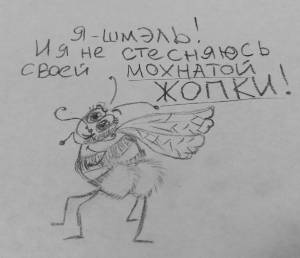 Я-ШМЭЛЬ!
И Я НЕ СТЕСНЯЮСЬ
СВОЕЙ МОХНАТОЙ
ЖОПКИ!